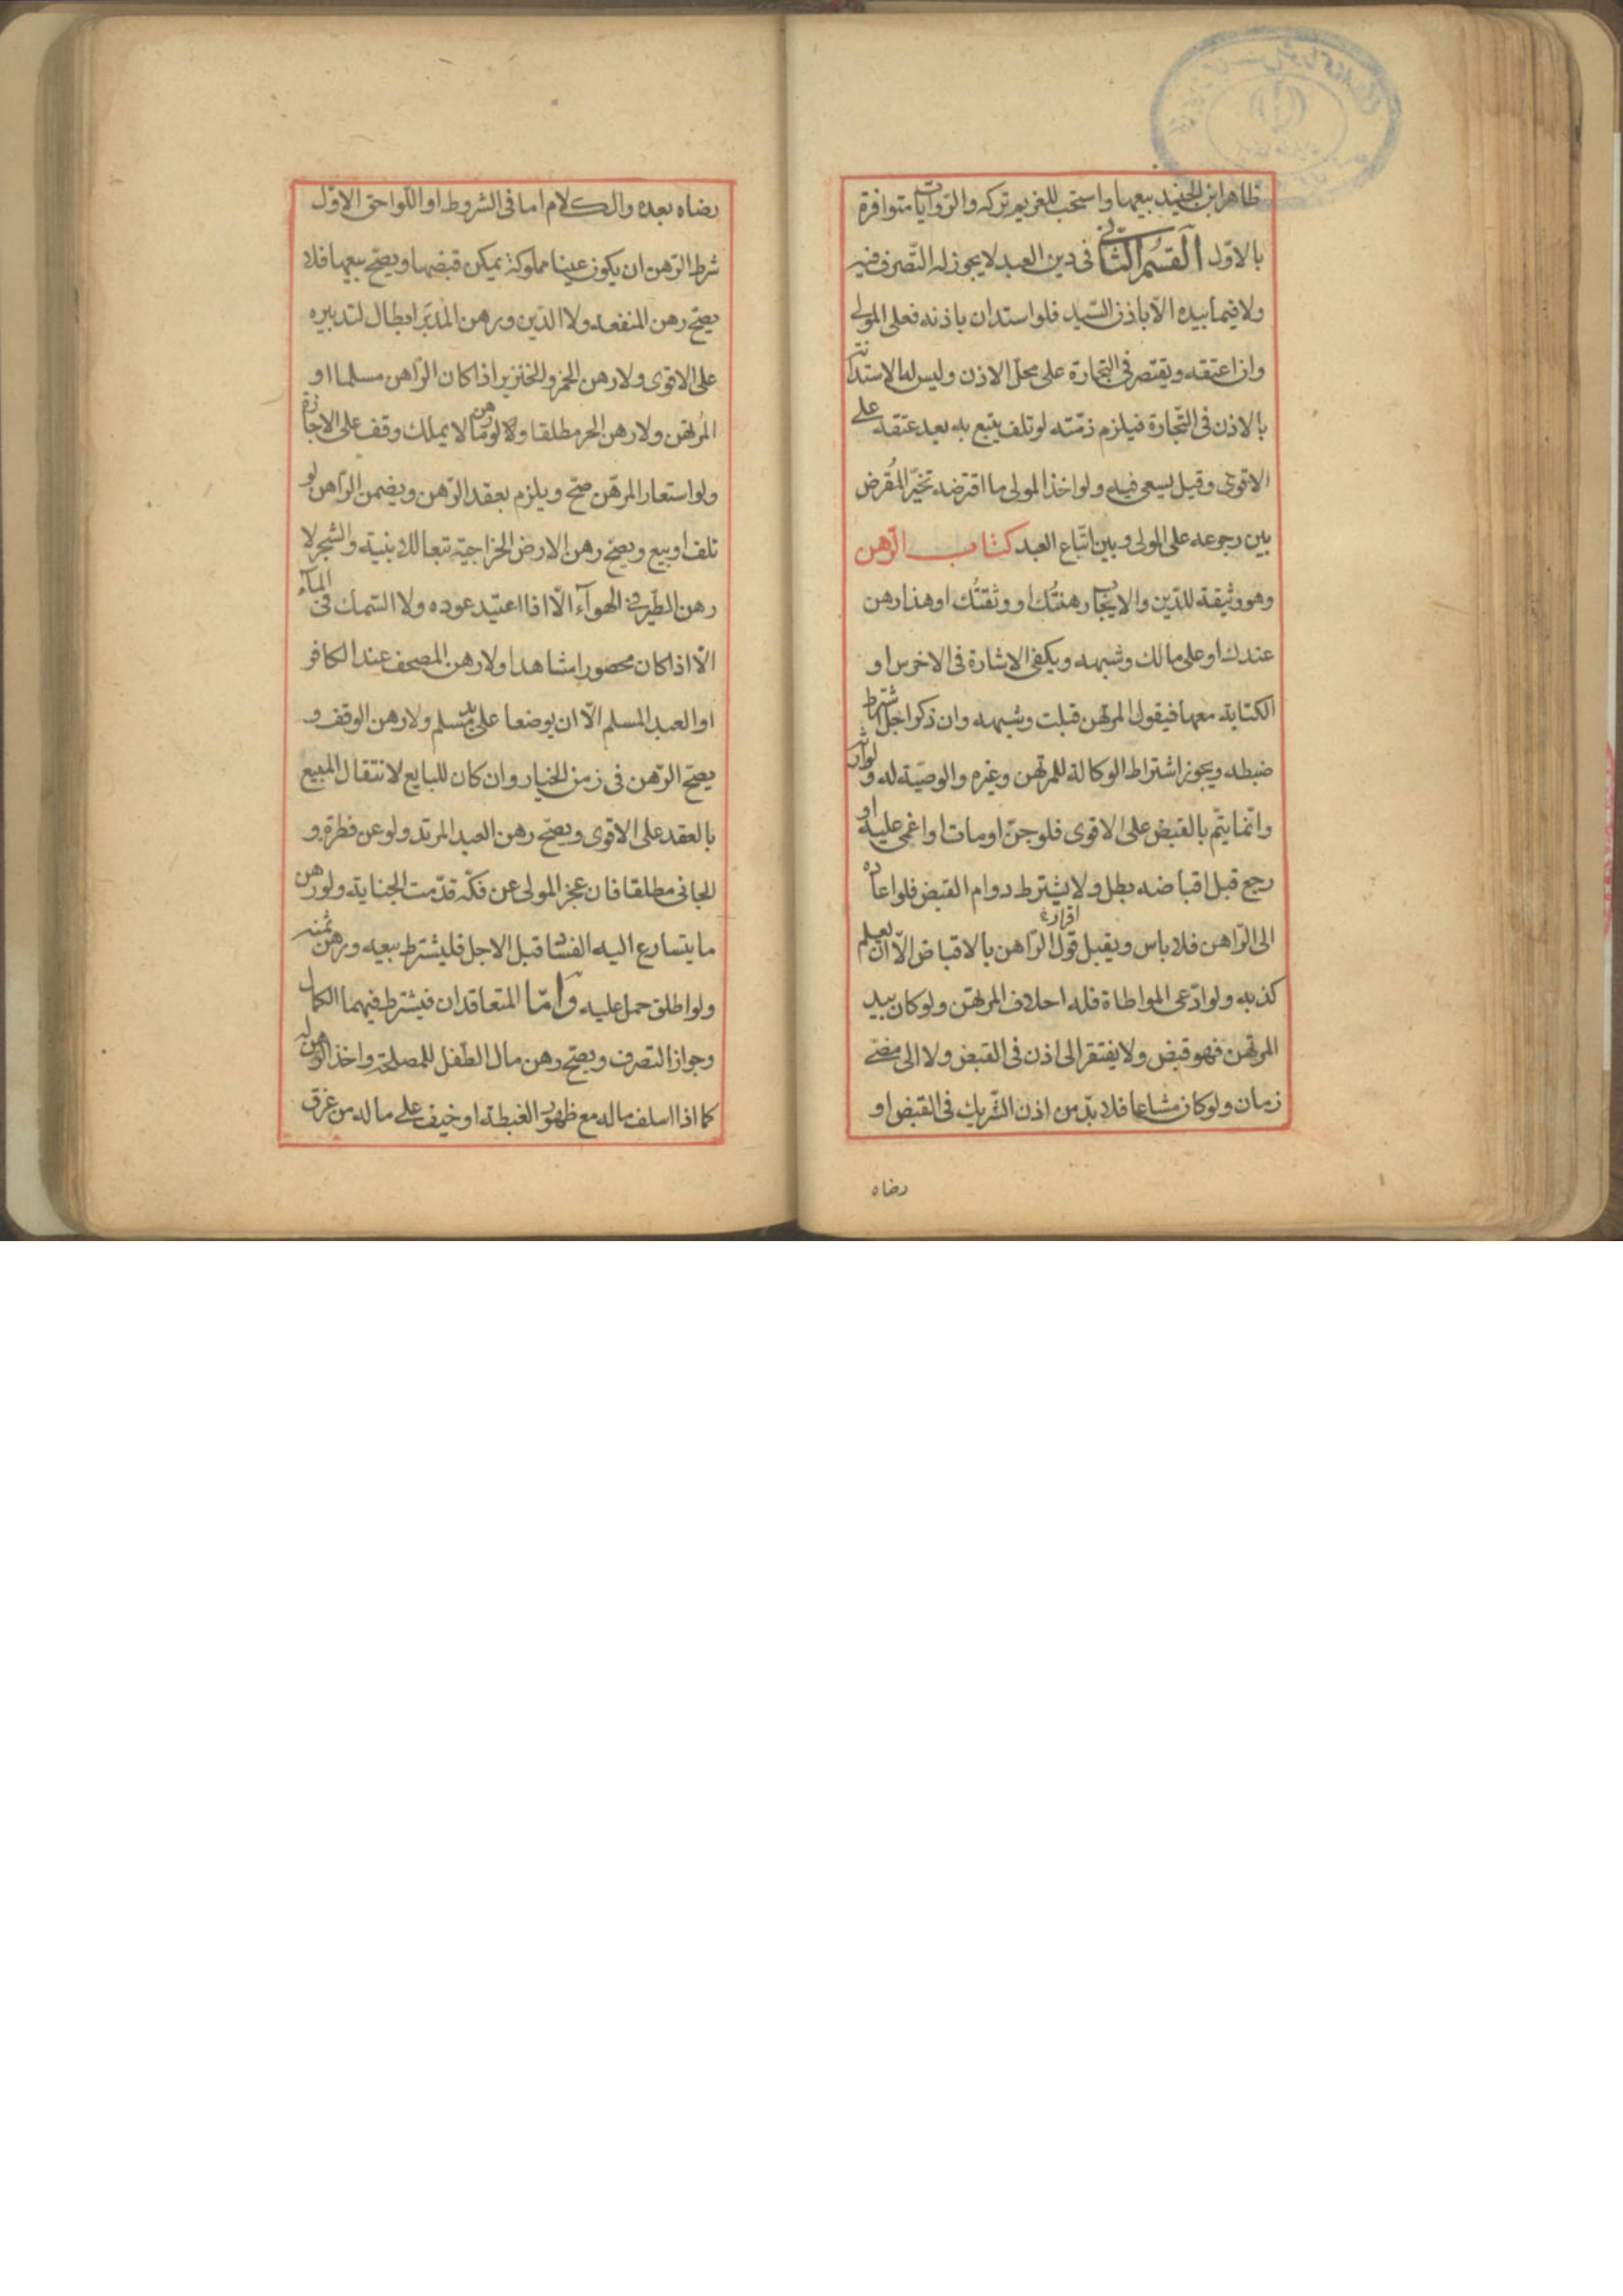 ظاهر ابن الجنيد بيعها واستحب للغريم تركه والروايات متوافرة
بالاول القسم الثاني في دين العبد لا يجوز له التصرف فيه
ولا فيما بيده الا باذن السيد فلو استدان باذنه فعلى المولى
وان اعتقه ويقتصر في التجارة على محل الاذن وليس له الاستدانة
بالاذن في التجارة فيلزم ذمته لو تلف يتبع به بعد عتقه على
الاقوى وقيل يسعى فيه ولو اخذ المولى ما اقترضه تخير المُقرض
بين رجوعه على المولى وبين اتباع العبد كتاب الرهن
وهو وثيقة للدين والايجاب رهنتُك او وثقتُك او هذا رهن
عندك او على مالك وشبهه ويكفي الاشارة في الاخرس او
الكتابة معها فيقول المرتهن قبلت وشبهه وان ذكر اجلا اشترط
ضبطه ويجوز اشتراط الوكالة للمرتهن وغيره والوصية له ولوارثه
وانما يتم بالقبض على الاقوى فلو جن او مات او اغمي عليه او
رجع قبل اقباضه بطل ولا يشترط دوام القبض فلو اعاده
الى الراهن فلا باس ويقبل قول الراهن بالاقباض الا ان يعلم
اقراره
كذبه ولو ادعى المواطاة فله احلاف المرتهن ولو كان بيد
المرتهن فهو قبض ولا يفتقر الى اذن في القبض ولا الى مضي
زمان ولو كان مشاعا فلا بد من اذن الشريك في القبض او
رضاه
رضاه بعده والكلام اما في الشروط او اللواحق الاول
شرط الرهن ان يكون عينا مملوكة يمكن قبضها ويصح بيعها فلا
يصح رهن المنفعة ولا الدين ورهن المدبّر ابطال لتدبيره
على الاقوى ولا رهن الخمر والخنزير اذا كان الراهن مسلما او
المرتهن ولا رهن الحر مطلقا ولو رهن ما لا يملك وقف على الاجازة
ولو استعار للرهن صح ويلزم بعقد الرهن ويضمن الراهن لو
تلف او بيع ويصح رهن الارض الخراجية تبعا للابنية والشجر لا
رهن الطير في الهوآء الا اذا اعتيد عوده ولا السمك في المآء
الا اذا كان محصورا مشاهدا ولا رهن المصحف عند الكافر
او العبد المسلم الا ان يوضعا على يد مسلم ولا رهن الوقف و
يصح الرهن في زمن الخيار وان كان للبايع لانتقال المبيع
بالعقد على الاقوى ويصح رهن العبد المرتد ولو عن فطرة و
الجاني مطلقا فان عجز المولى عن فكّه قدّمت الجناية ولو رهن
ما يتسارع اليه الفساد قبل الاجل فليشترط بيعه ورهن ثمنه
ولو اطلق حمل عليه وامّا المتعاقدان فيشترط فيهما الكمال
وجواز التصرف ويصح رهن مال الطفل للمصلحة واخذ الرهن له
كما اذا اسلف ماله مع ظهور الغبطة او خيف على ماله من غرق